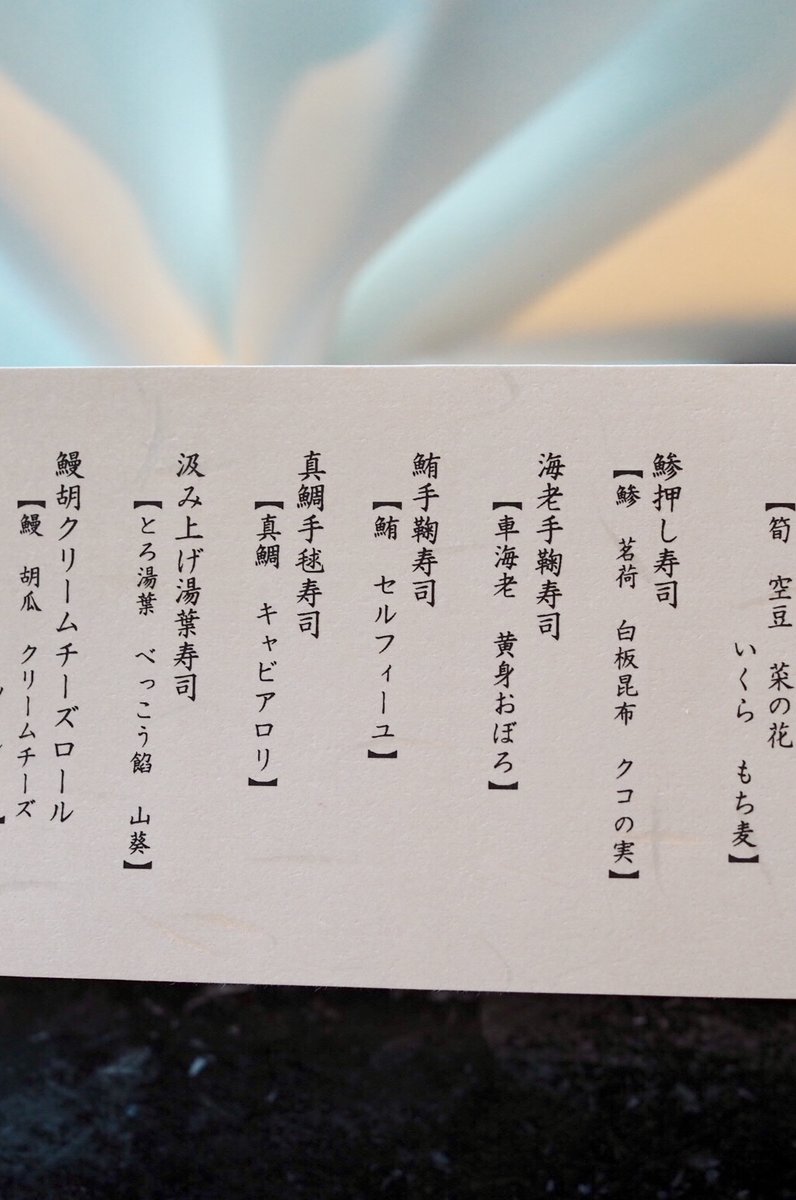 【筍　空豆　菜の花
いくら　もち麦】
鯵押し寿司
【鯵　茗荷　白板昆布　クコの実】
海老手鞠寿司
【車海老　黄身おぼろ】
鮪手鞠寿司
【鮪　セルフィーユ】
真鯛手毬寿司
【真鯛　キャビアロリ】
汲み上げ湯葉寿司
【とろ湯葉　べっこう餡　山葵】
鰻胡クリームチーズロール
【鰻　胡瓜　クリームチーズ